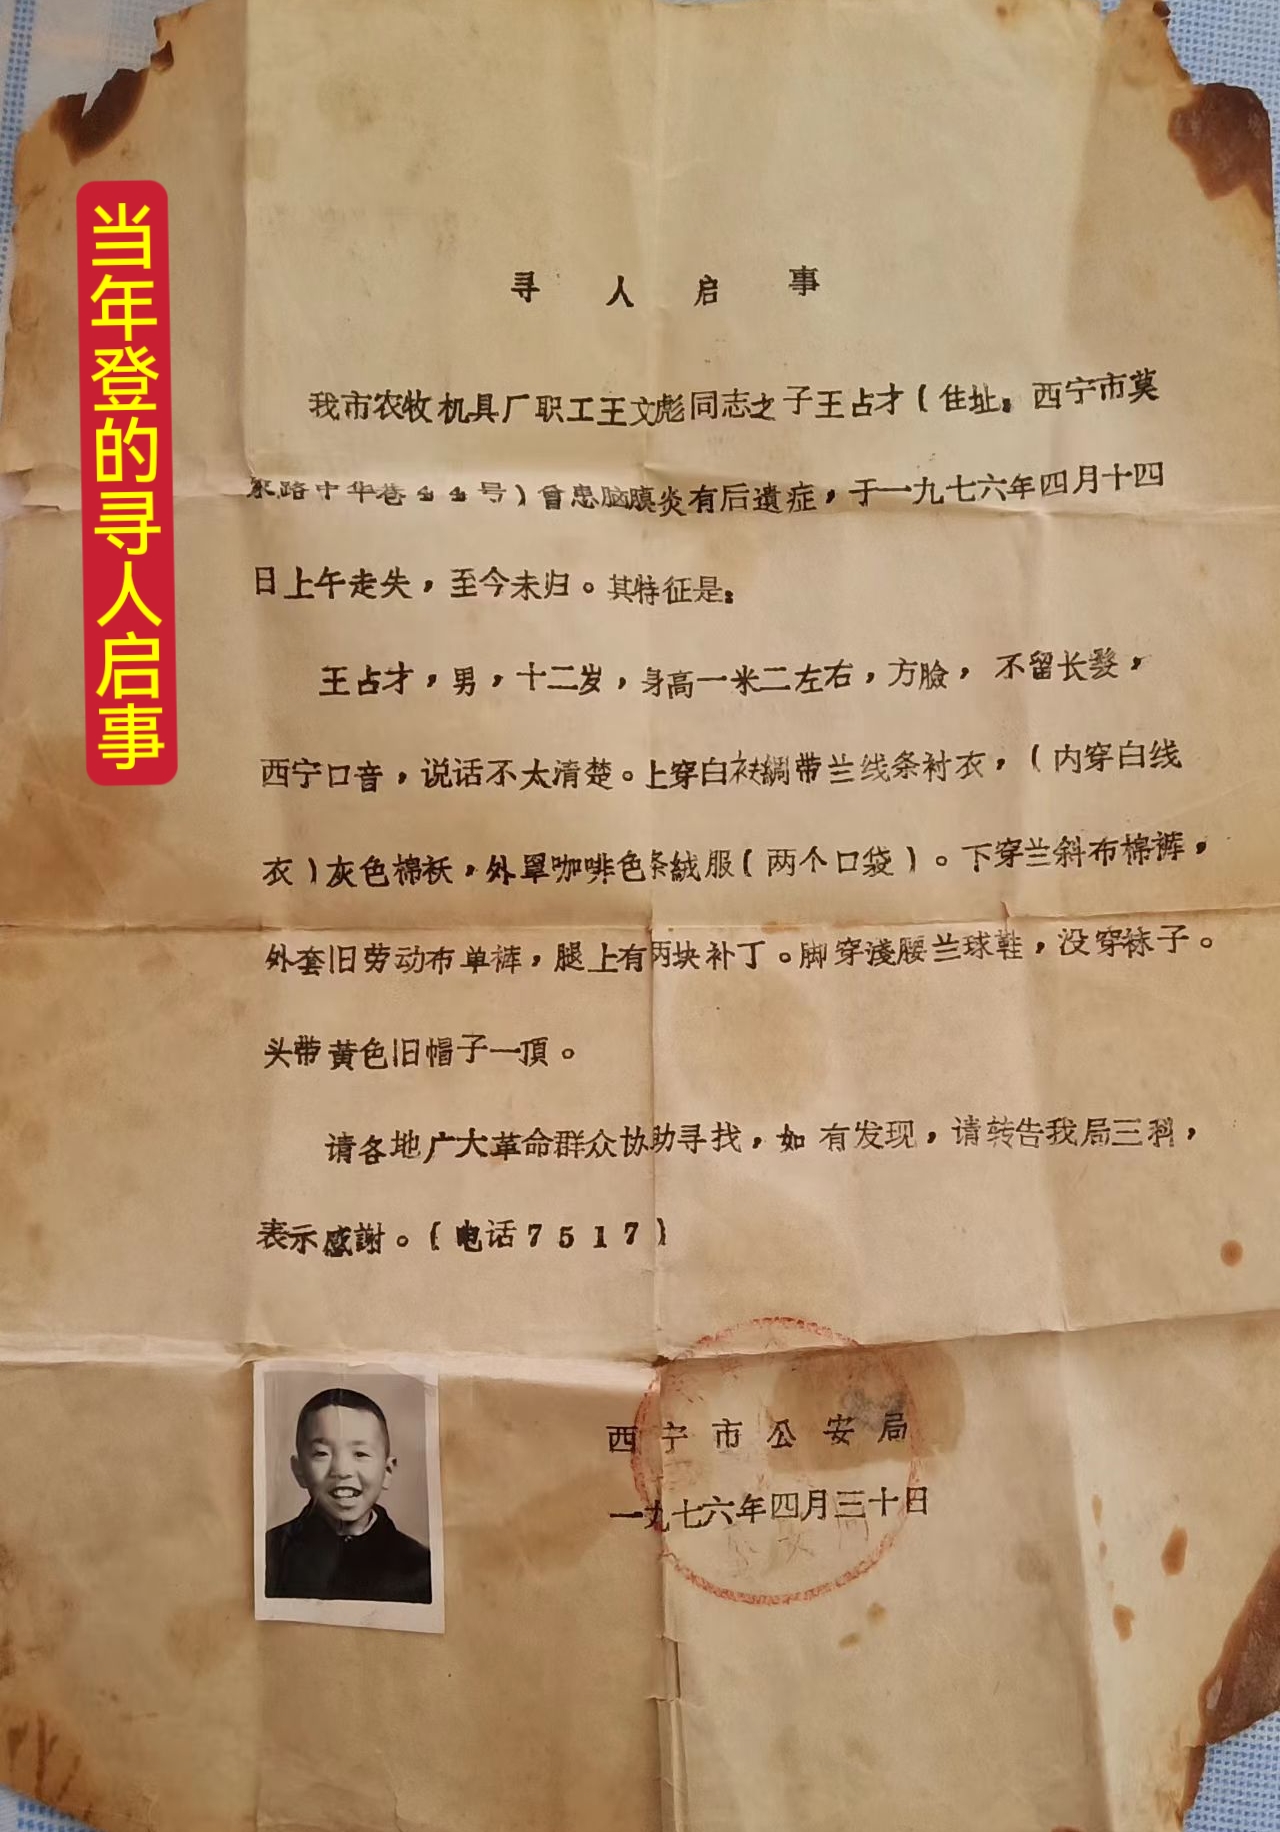 当年登的寻人启事
寻人启事
我市农牧机具厂职工王文彪同志之子王占才(住址:西宁市莫
家路中华巷44号)曾患脑膜炎有后遗症,于一九七六年四月十四
日上午走失,至今未归。其特征是:
王占才,男,十二岁,身高一米二左右,方臉,不留长髮,
西宁口音,说话不太清楚。上穿白衭綢带兰线条衬衣,(内穿白线
衣)灰色棉袄,外罩咖啡色条絨服(两个口袋)。下穿兰斜布棉裤,
外套旧劳动布单裤,腿上有两块补丁。脚穿淺腰兰球鞋,没穿袜子。
头带黄色旧帽子一頂。
请各地广大革命群众协助寻找,如有发现,请转告我局三科,
表示感謝。(电话7517)
西宁市公安局
一九七六年四月三十日